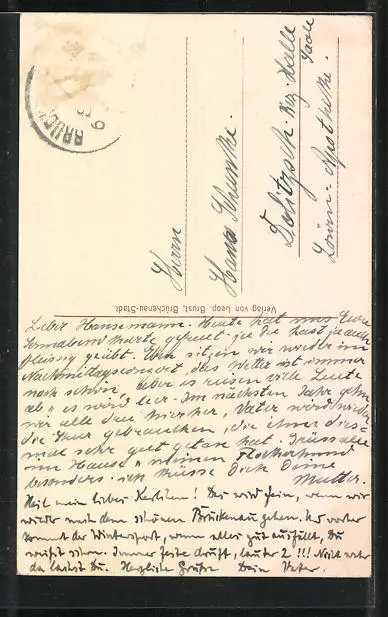 BRÜCK
Herrn
Hans Schumke.
Delitzsch. Bez. Halle
Saale
Löwen-Apotheke.
Verlag von Leop. Brust, Brückenau-Stadt
Lieber Hansemann. Heute hat uns Eure
Sonnabend karte gefreut, ja du hast ja auch
fleissig geübt. Eben sitzen wir wieder im
Nachmittagsconzert, das Wetter ist immer
noch schön, aber es reisen viele Leute
ab u. es wird leer. Im nächsten Jahr gehn
wir alle drei hierher, Vater wird wieder
die Kur gebrauchen, die ihm dies-
mal sehr gut getan hat. Grüss alle
im Hause u. meinen Flockerhund
besonders. ich küsse Dich Deine
Mutter.
Heil mein lieber Kerlchen! Das wird fein, wenn wir
wieder nach dem schönen Brückenau gehen. Und vorher
kommt der Wintersport, wenn alles gut ausfällt, Du
weißt schon. Immer feste druff, lauter 2 !!! Nicht wahr
da lachst Du. Herzliche Grüße Dein Vater.